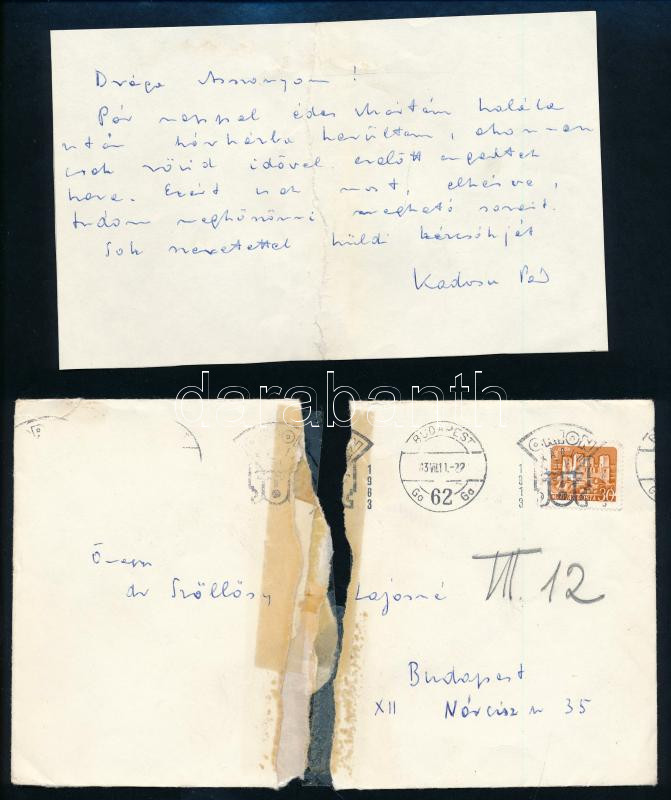 Drága Asszonyom!
Pár nappal édes Mártám halála
után kórházba kerültem, ahonnan
csak rövid idővel ezelőtt engedtek
haza. Ezért csak most, elkésve,
tudom megköszönni megható sorait.
Sok szeretettel küldi kézcsókját
Kadosa Pál
darabanth
ORION
BUDAPEST
62
1963
1913
ORION
MAGYAR POSTA 30
Ő nagys.
dr Szöllősy Lajosné
III. 12
Budapest
XII Nárcisz u 35